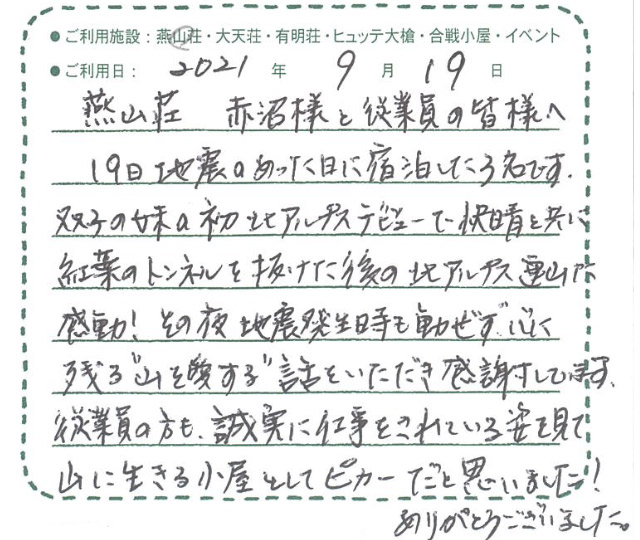 ● ご利用施設：燕山荘・大天荘・有明荘・ヒュッテ大槍・合戦小屋・イベント
● ご利用日： 2021 年 9 月 19 日
燕山荘 赤沼様と従業員の皆様へ
19日地震のあった日に宿泊した3名です.
双子の妹の初北アルプスデビューで快晴と共に
紅葉のトンネルを抜けた後の北アルプス連山に
感動！その夜地震発生時も動ぜず心に
残る"山を愛する"話をいただき感謝してます.
従業員の方も、誠実に仕事をされている姿を見て
山に生きる小屋としてピカ一だと思いました！
ありがとうございました。